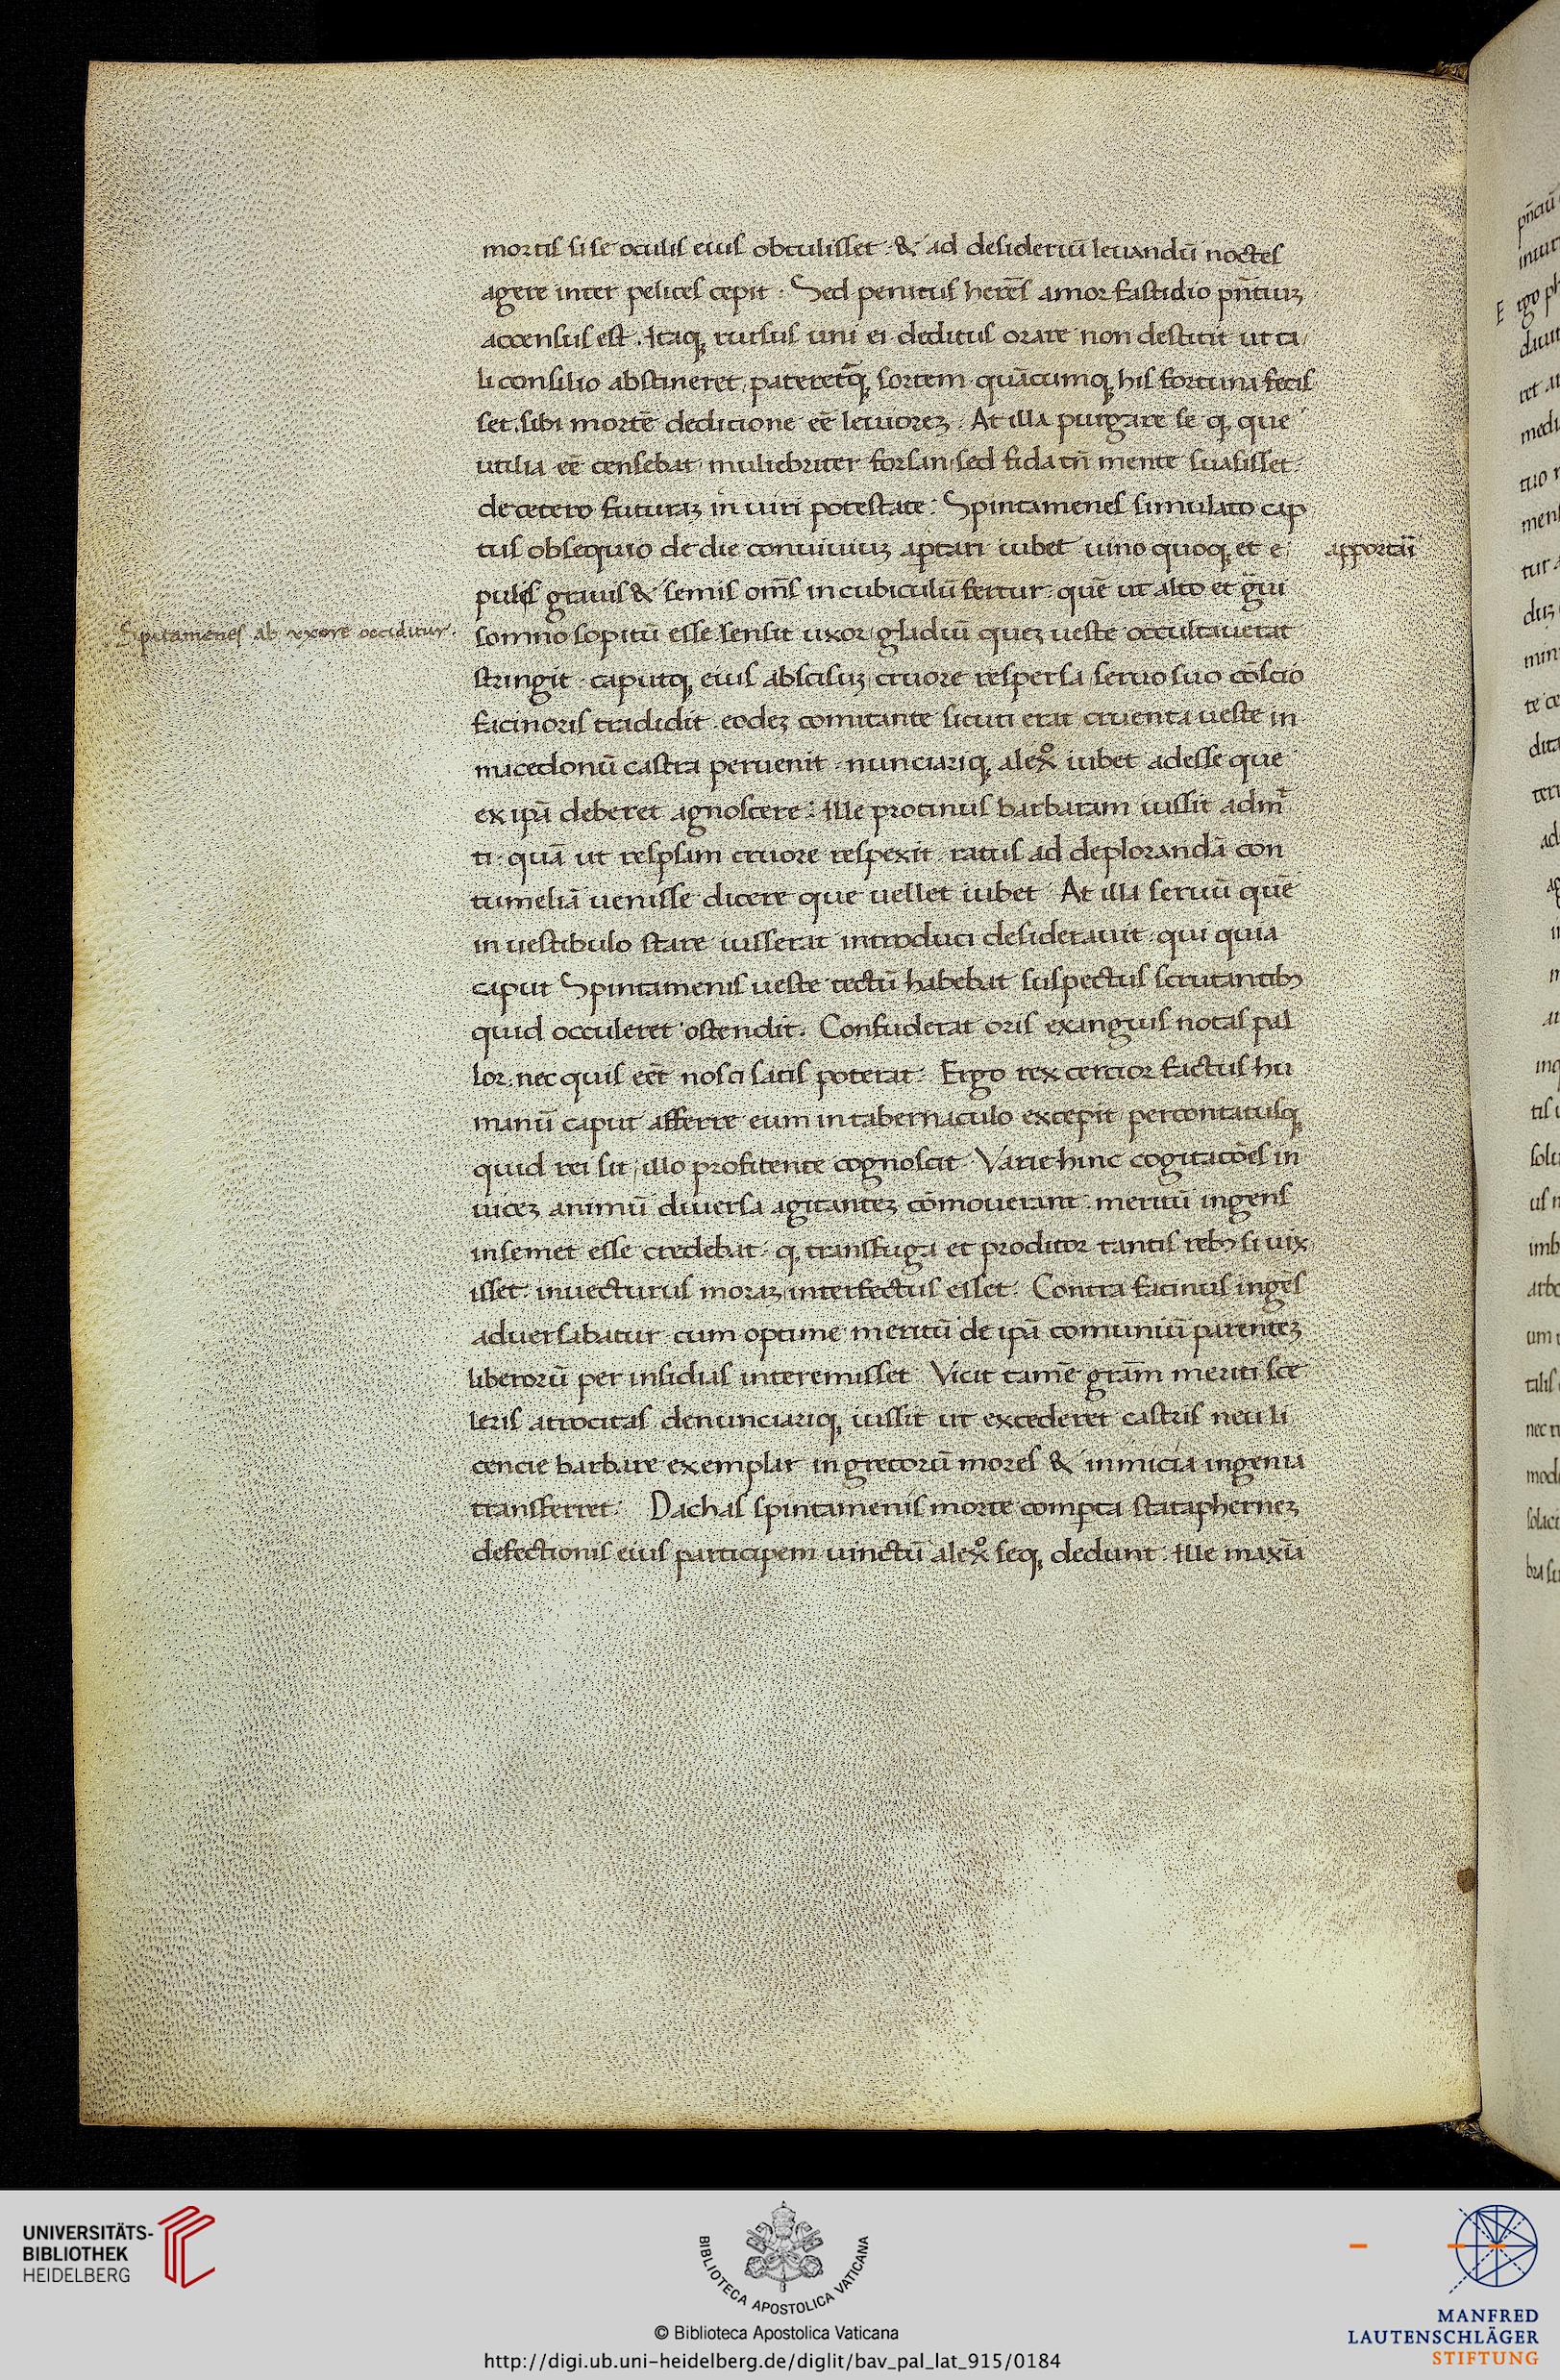 mortis si se oculis eius obtulisset · & ad desideriū levandū noctes
agere inter pelices cepit · Sed penitus herēs amor fastidio pn̄tiuʒ
accensus est . Itaqʒ rursus uni ei deditus orare non destitit ut ta
li consilio abstineret, pateretq̄ʒ sortem quācumqʒ his fortuna fecis
set . sibi mortē deditione eē leviorez . At illa purgare se qʒ que
utilia eē censebat muliebriter forsan sed fida tn̄ mente suasisset ·
de cetero futuraʒ in viri potestate · Spintamenes simulato cap
tus obsequio de die conviviuʒ aptari iubet vino quoqʒ et e
pulis gravis & semis om̄s in cubiculū fertur · quē ut alto et gravi
somno sopitū esse sensit uxor gladiū queʒ veste occultaverat
stringit · caputqʒ eius abscisuʒ cruore respersa servo suo cōscio
facinoris tradidit . eodeʒ comitante sicuti erat cruenta veste in
macedonū castra pervenit · nunciariqʒ alexͦ iubet adesse que
ex ipā deberet agnoscere · Ille protinus barbaram iussit admi
ti · quā ut respsam cruore respexit · ratus ad deplorandā con
tumeliā venisse dicere que vellet iubet · At illa servū quē
in vestibulo stare iusserat introduci desideravit · qui quia
caput Spintamenis veste tectū habebat suspectus scrutantibʒ
quid occuleret ostendit . Confuderat oris exanguis notas pal
lor . nec quis eēt nosci satis poterat · Ergo rex certior factus hu
manū caput afferre eum in tabernaculo excepit percontatusqʒ
quid rei sit, illo profitente cognoscit · Varie hinc cogitatōēs in
viceʒ animū diversa agitanteʒ cōmoverant · meritū ingens
in semet esse credebat · qʒ transfuga et proditor tantis rebʒ si vix
isset · invecturus moraʒ interfectus esset · Contra facinus ingēs
adversabatur cum optime meritū de ipā comuniū parenteʒ
liberorū per insidias interemisset Vicit tamē grām meriti sce
leris atrocitas denunciariqʒ iussit ut excederet castris neu li
cencie barbare exemplar in grecorū mores & inmicia ingenia
transferret · Dachas spintamenis morte compta stataphernez
defectionis eius participem vinctū alexͦ seqʒ dedunt · Ille maxīa
apportari
Spitamenes ab uxore occiditur .
UNIVERSITÄTS-
BIBLIOTHEK
HEIDELBERG
BIBLIOTECA APOSTOLICA VATICANA
© Biblioteca Apostolica Vaticana
http://digi.ub.uni-heidelberg.de/diglit/bav_pal_lat_915/0184
MANFRED
LAUTENSCHLÄGER
STIFTUNG